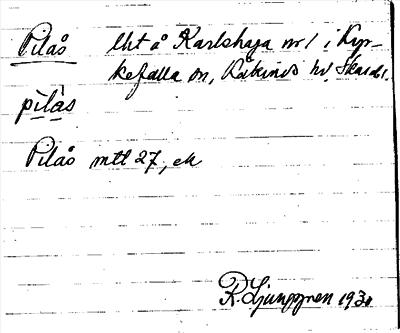 Pilås lht å Karlshaga nr 1 i Kyr-
kefalla sn, Kåkinds hd, Skarabl.
pìlas
Pilås mtl 27, ek
R. Ljunggren 1930